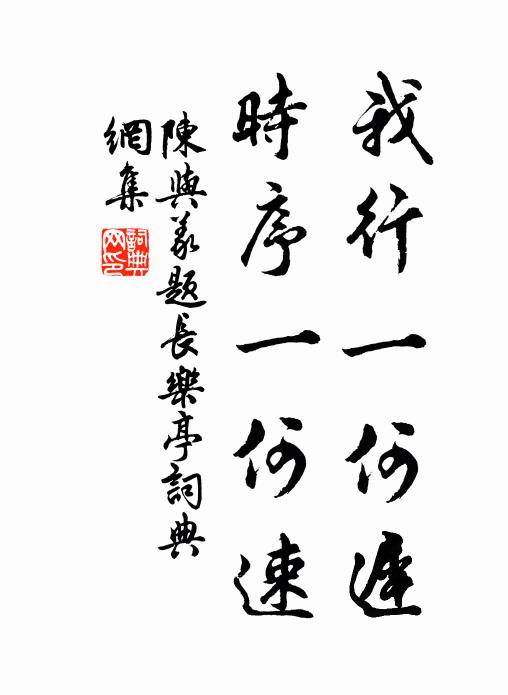 我行一何遲
時序一何速
陳與義題長樂亭詞典
網集
詞典網印